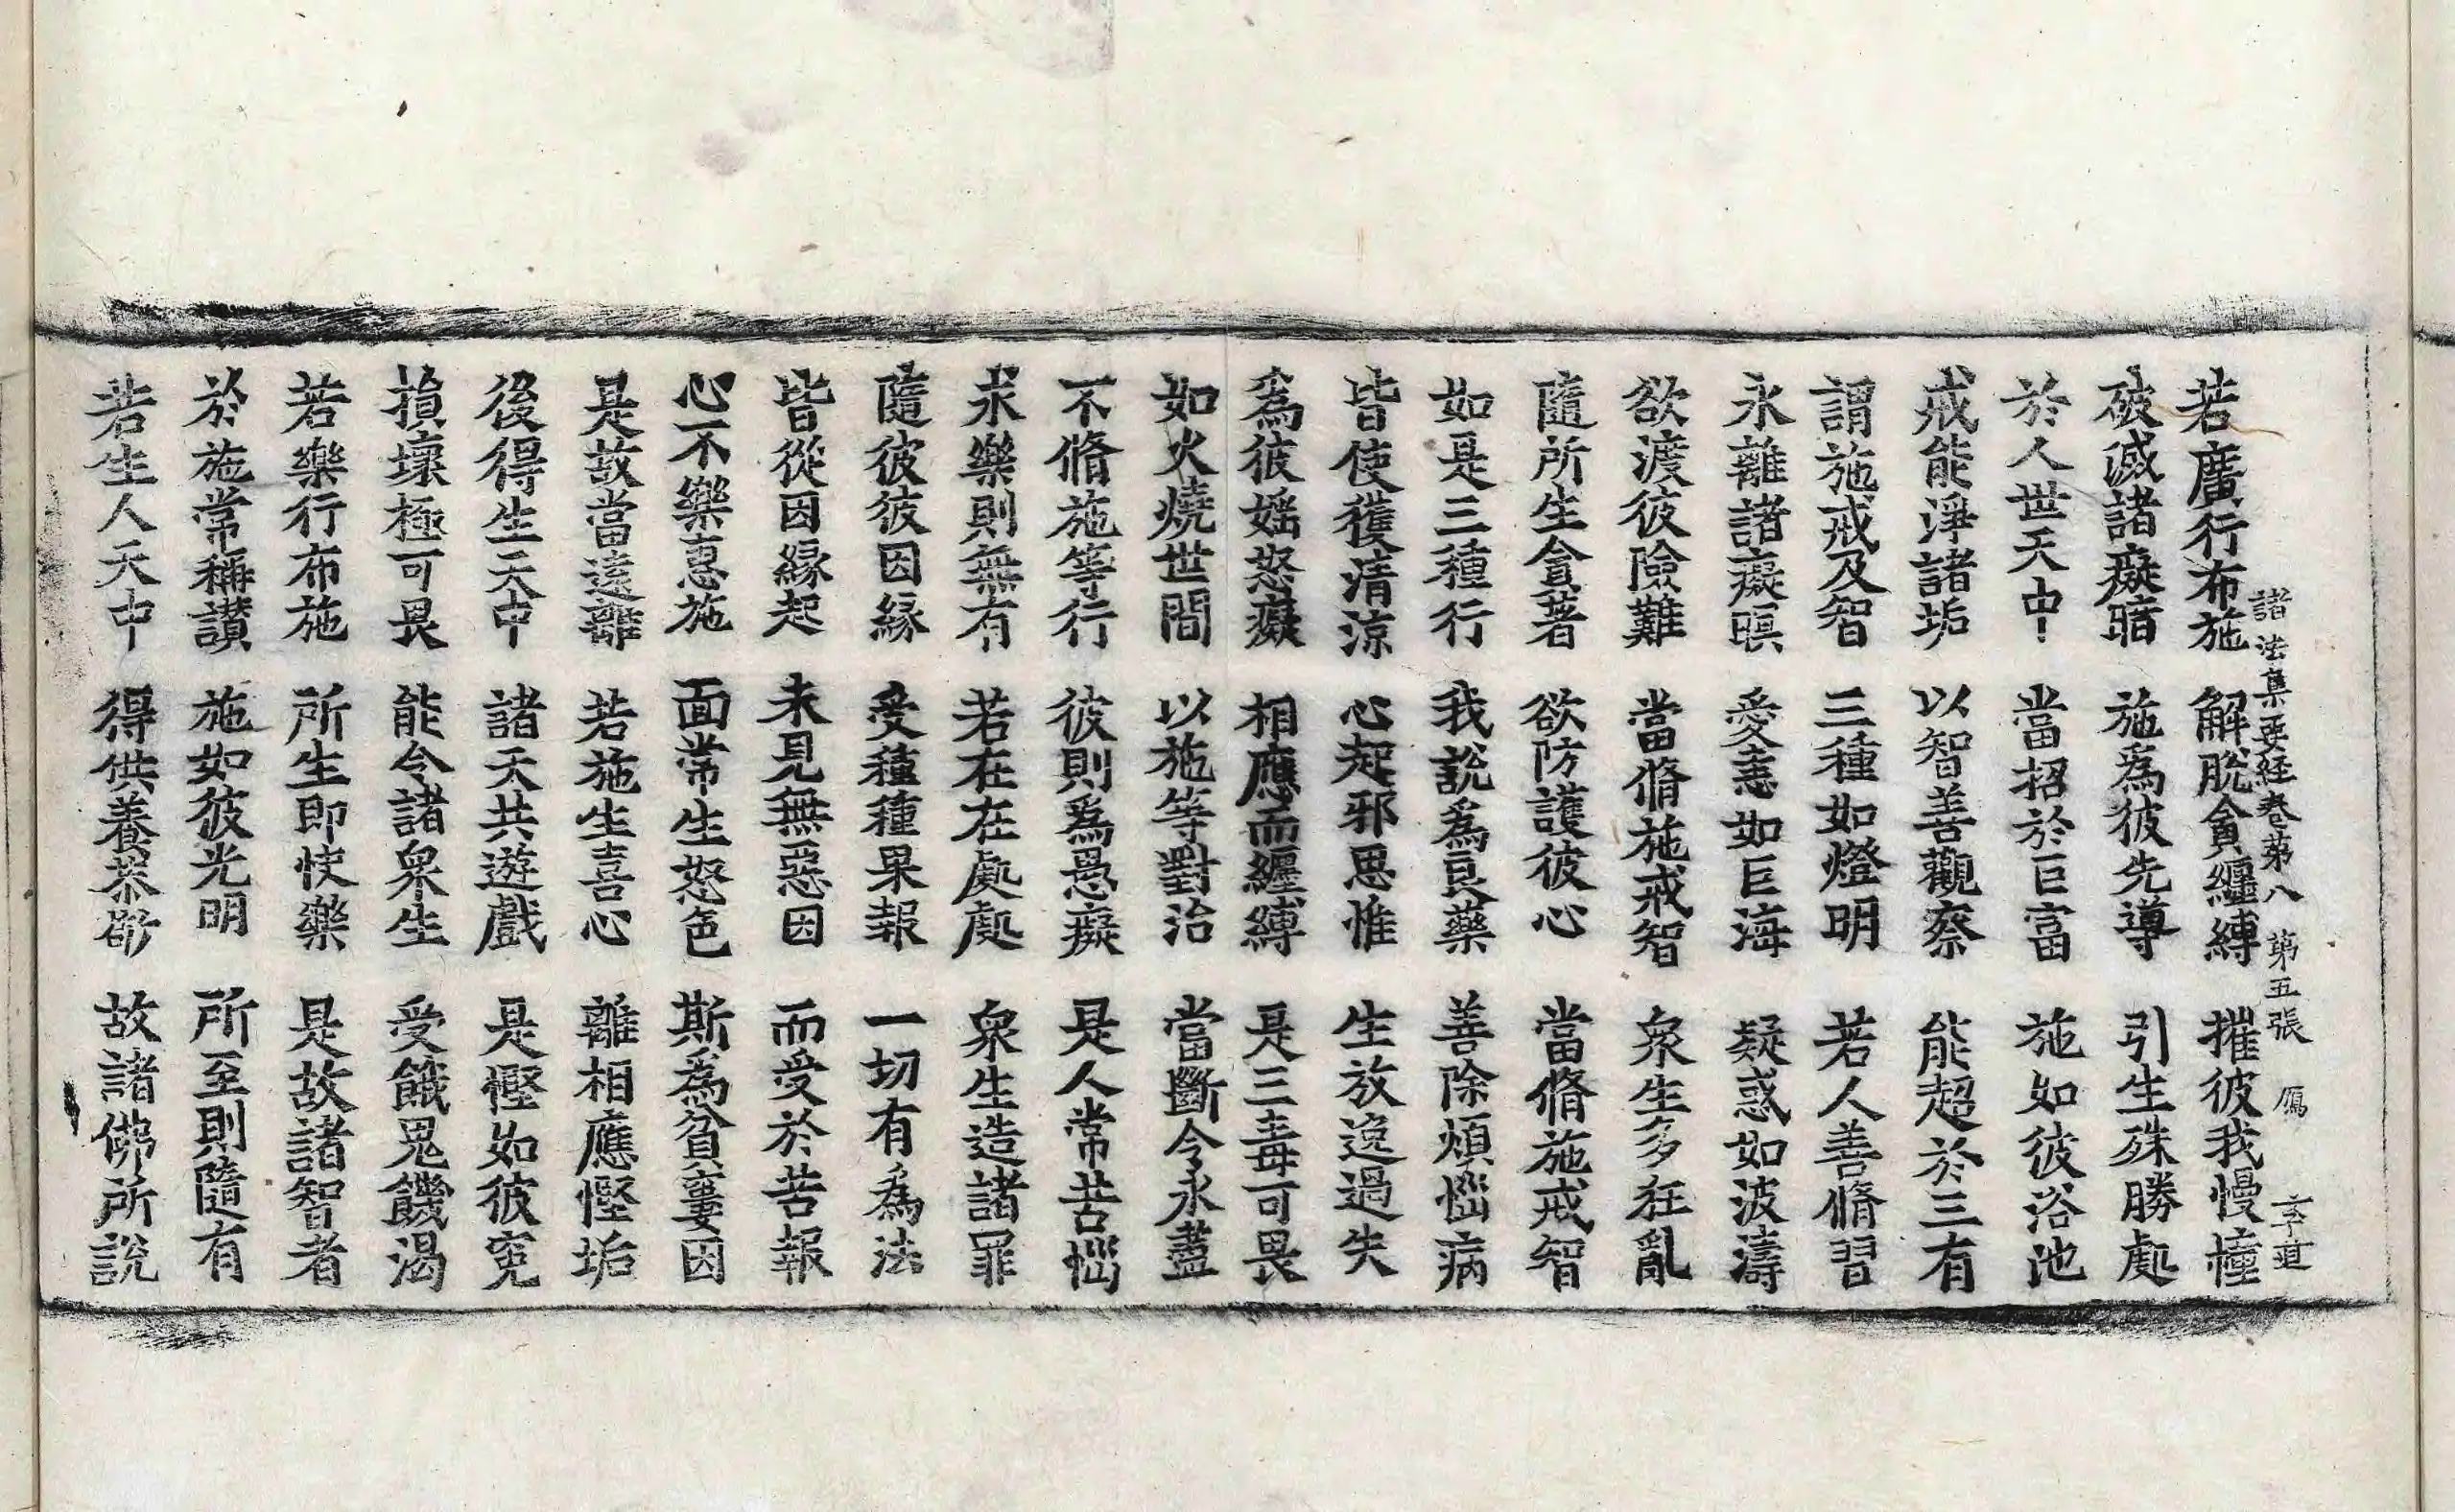 諸法集要經卷第八　第五張　鴈　李莄
若廣行布施　解脫貪纏縛　摧彼我慢幢
破滅諸癡暗　施爲彼先導　引生殊勝處
於人世天中　當招於巨富　施如彼浴池
戒能淨諸垢　以智善觀察　能超於三有
謂施戒及智　三種如燈明　若人善脩習
永離諸癡暝　愛恚如巨海　疑惑如波濤
欲渡彼險難　當脩施戒智　衆生多狂亂
隨所生貪著　欲防護彼心　當脩施戒智
如是三種行　我說爲良藥　善除煩惱病
皆使獲清涼　心起邪思惟　生放逸過失
爲彼婬怒癡　相應而纏縛　是三毒可畏
如火燒世間　以施等對治　當斷令永盡
不脩施等行　彼則爲愚癡　是人常苦惱
求樂則無有　若在在處處　衆生造諸罪
隨彼彼因緣　受種種果報　一切有爲法
皆從因緣起　未見無惡因　而受於苦報
心不樂惠施　面常生怒色　斯爲貧窶因
是故當遠離　若施生喜心　離相應慳垢
後得生天中　諸天共遊戲　是慳如彼寃
損壞極可畏　能令諸衆生　受餓鬼饑渴
若樂行布施　所生即快樂　是故諸智者
於施常稱讃　施如彼光明　所至則隨有
若生人天中　得供養恭敬　故諸佛所說